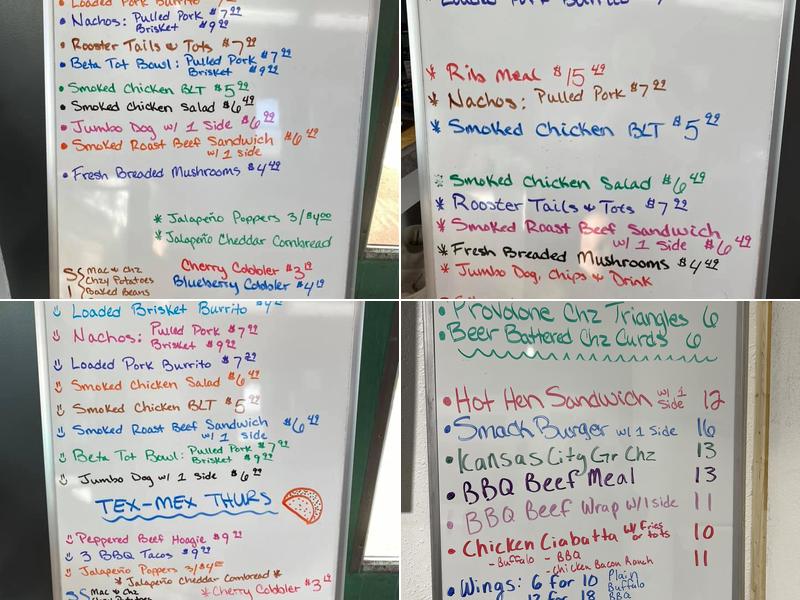 Loaded Pork Burrito $7
• Nachos: Pulled Pork $7.99
Brisket $9.99
• Rooster Tails & Tots $7.99
• Beta Tot Bowl: Pulled Pork $7.99
Brisket $9.99
• Smoked Chicken BLT $5.99
• Smoked Chicken Salad $6.49
• Jumbo Dog w/ 1 Side $6.99
• Smoked Roast Beef Sandwich $6.49
w/ 1 side
• Fresh Breaded Mushrooms $4.49
* Jalapeño Poppers 3/$4.00
* Jalapeño Cheddar Cornbread
Mac & Chz
Chzy Potatoes
Baked Beans
Cherry Cobbler $3.19
Blueberry Cobbler $4.19
* Ribs Meal $15.49
* Nachos: Pulled Pork $7.99
* Smoked Chicken BLT $5.99
* Smoked Chicken Salad $6.49
* Rooster Tails & Tots $7.99
* Smoked Roast Beef Sandwich
w/ 1 side $6.49
* Fresh Breaded Mushrooms $4.49
* Jumbo Dog, Chips & Drink
Loaded Brisket Burrito
Nachos: Pulled Pork $7.99
Brisket $9.99
Loaded Pork Burrito $7.99
Smoked Chicken Salad $6.49
Smoked Chicken BLT $5.99
Smoked Roast Beef Sandwich $6.49
w/ 1 side
Beta Tot Bowl: Pulled Pork $7.99
Brisket $9.99
Jumbo Dog w/ 1 side $6.99
TEX-MEX THURS
Peppered Beef Hoagie $9.99
3 BBQ Tacos $9.99
Jalapeño Poppers 3/$4
* Jalapeño Cheddar Cornbread *
Mac & Chz
* Cherry Cobbler $3.19
• Provolone Chz Triangles 6
• Beer Battered Chz Curds 6
• Hot Hen Sandwich w/ 1 Side 12
• Smack Burger w/ 1 Side 16
• Kansas City Gr Chz 13
• BBQ Beef Meal 13
• BBQ Beef Wrap w/ 1 side 11
• Chicken Ciabatta w/ Fries or tots 10
- Buffalo - BBQ
- Chicken Bacon Ranch 11
• Wings: 6 for 10 Plain
Buffalo
12 for 18 BBQ